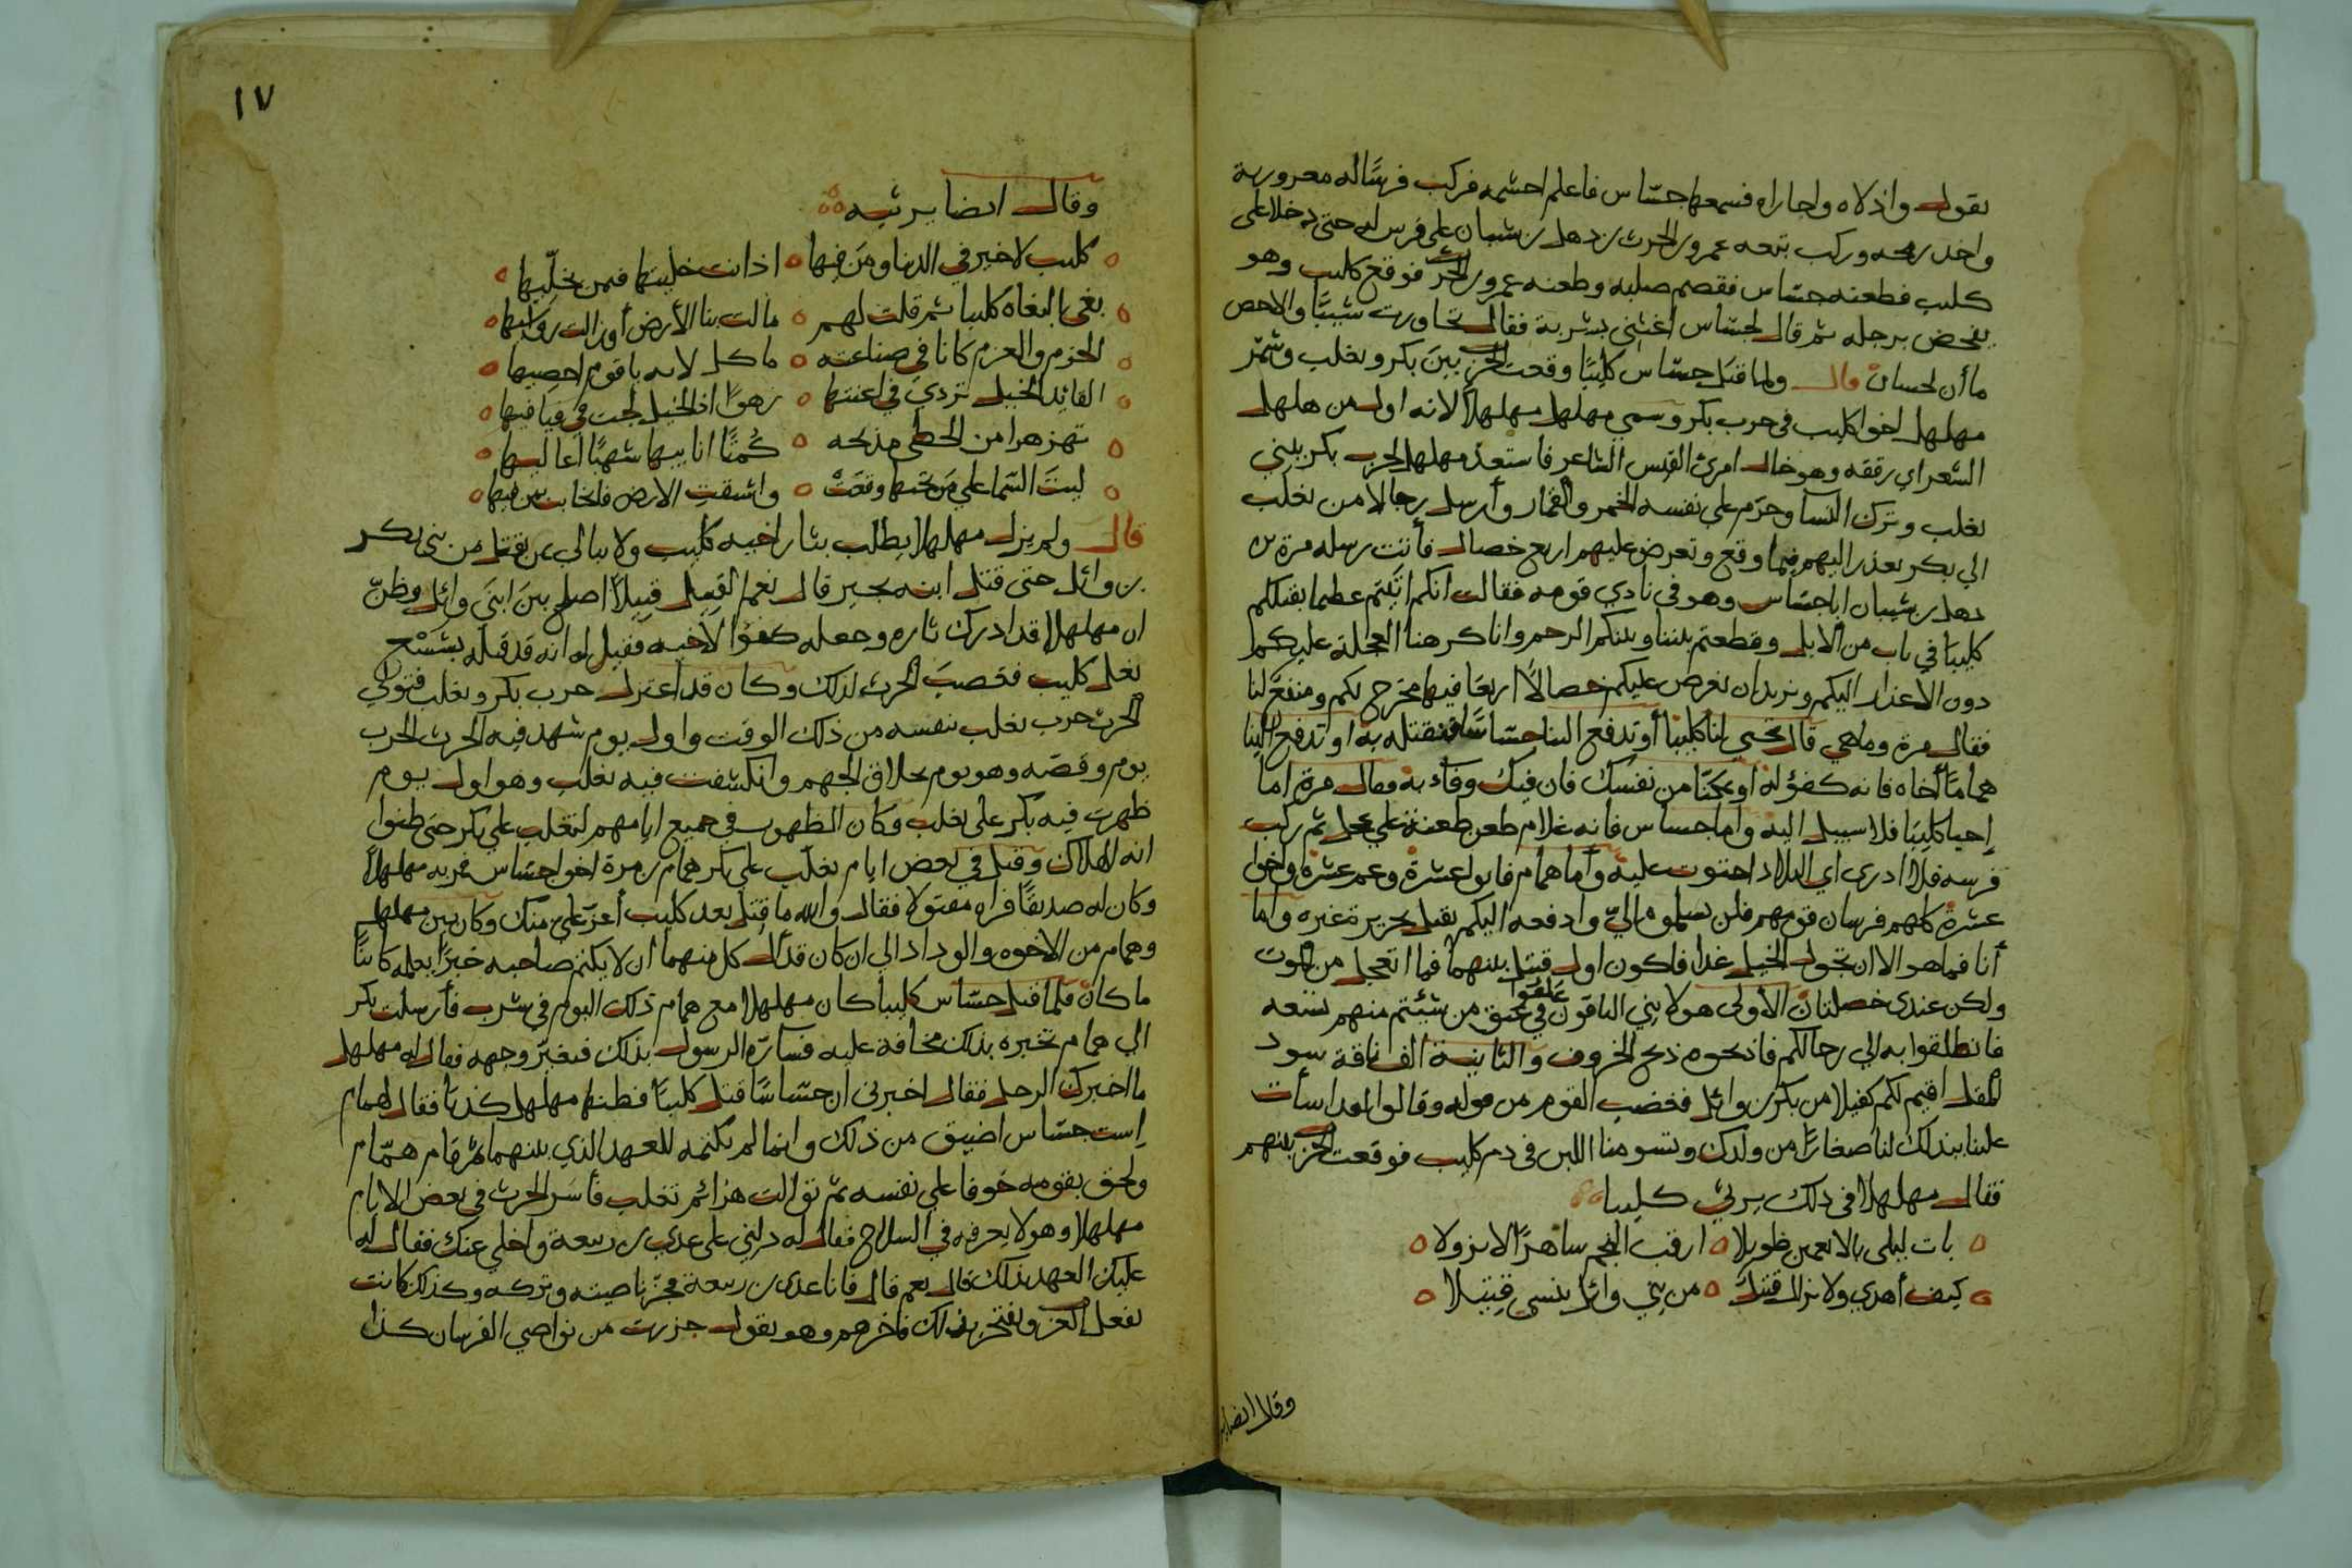 يقول واذلاه واجاراه فسمعها جسّاس فاعلم احشمه فركب فرسًا له معرورية
واخذ رمحه وركب تبعه عمرو بن الحرث بن ذهل بن شيبان على فرس له حتى دخلا على
كليب فطعنه جسّاس فقصم صلبه وطعنه عمرو بن الحرث فوقع كليب وهو
يفحص برجله ثم قال لجسّاس اغثني بشربة فقال تجاورت شبيبًا والاحص
ما أن لحسان قال ولما قتل جسّاس كليبًا وقعت الحرب بين بكر وتغلب وشمّر
مهلهل اخوا كليب في حرب بكر وسمي مهلهل مهلهلًا لانه اول من هلهل
الشعر اي رققه وهو خال امرئ القيس الشاعر فاستعدّ مهلهل لحرب بكر بلني
تغلب وترك النسا وحرّم على نفسه الخمر والقمار وأرسل رجالا من تغلب
الي بكر يعذر اليهم فيما وقع وتعرض عليهم اربع خصال فأتت رسله مرة بن
ذهل بن شيبان ابا جسّاس وهو في نادي قومه فقالت انكم اتيتم عظيما بقتلكم
كليبًا في ناب من الابل وقطعتم بيننا وبينكم الرحم وانا كرهنا العجلة عليكم
دون الاعذار اليكم ونريد ان نعرض عليكم خصالًا اربعًا فيها مخرج لكم ومنفع لنا
فقال مرة وما هي قال تحيي لنا كليبًا أو تدفع الينا جسّاسًا فنقتله به او تدفع الينا
همامًا أخاه فانه كفؤ له او تمكنّا من نفسك فان فيك وفاء به فقال مرة اما
إحيا كليبًا فلا سبيل اليه واما جساس فانه غلام طعن طعنة على عجل ثم ركب
فرسه فلا ادري اي البلاد احتوت عليه وأما همام فابو عشرة وعم عشرة واخو
عشرة كلهم فرسان قومهم فلن يسلموه اليّ وادفعه اليكم يقتل بجريرة غيره واما
أنا فما هو الا ان تجول الخيل غدا فاكون اول قتيل بينهما فما اتعجل من الموت
ولكن عندي خصلتان الأولى هولا بني الباقون علقوا في عنق من شئتم منهم نسعه
فانطلقوا به الي رحالكم فاذبحوه ذبح الخروف والثانية الف ناقة سود
المقل اقيم لكم كفيلا من بكر بن وائل فغضب القوم من قوله وقالوا لقد اسأت
علينا ببذلك لنا صغارًا من ولدك وتسومنا اللبن في دم كليب فوقعت الحرب بينهم
فقال مهلهل في ذلك يرثي كليبا
بات ليلى بالانعمين طويلا ارقب النجم ساهرًا لا نزولا
كيف أهدي ولا نزال قتيل من بني وائل ينسي قتيلا
وقال ايضا
١٧
وقال ايضا يرثيه
كليب لا خير في الدنيا ومن فيها اذا انت خليتها فيمن يخلّيها
بغى البغاه كليبا ثم قلت لهم مالت بنا الأرض أو زالت رواسيها
الحزم والعزم كانا في صناعته ما كل لاىه يا قوم احصيها
القائد الخيل تردي في اعنتها زهوًا اذا الخيل لجت في فيافيها
تهز هرا من الخطى مدمجه كُمتًا انابيبها شهبًا اعاليها
ليت السّما على من تحتها وقعت وانشقت الارض فانجابت بمن فيها
قال ولم يزل مهلهلا يطلب بثار اخيه كليب ولا يبالي عن يقتل من بني بكر
بن وائل حتى قتل ابنه بجير قال نعم القتيل قتيلًا اصلح بين ابني وائل وظنّ
ان مهلهلا قد ادرك ثاره وجعله كفؤا لاخيه فقيل له انه قد قتله بشسع
نعل كليب فغضب الحرث لذلك وكان قد اعتزل حرب بكر وتغلب فتولي
الحرث حرب تغلب بنفسه من ذلك الوقت واول يوم شهد فيه الحرث الحرب
يوم وقضه وهو يوم تحلاق الجهم وانكشفت فيه تغلب وهو اول يوم
ظهرت فيه بكر على تغلب وكان الظهور في جميع ايامهم لتغلب على بكر حتى ظنوا
انه الهلاك وقتل في بعض ايام تغلب على بكر همام بن مرة اخو جسّاس فمر به مهلهلًا
وكان له صديقًا فراه مقتولا فقال والله ما قتل بعد كليب أعز عليّ منك وكان بين مهلهل
وهمام من الاخوه والوداد الي ان كان قد آلى كل منهما ان لا يكتم صاحبه خبرًا يعلمه كائنًا
ما كان فلما قتل جسّاس كليبا كان مهلهلا مع همام ذلك اليوم في شرب فأرسلت بكر
الي همام تخبره بذلك مخافة عليه فسارّه الرسول بذلك فتغيّر وجهه فقال له مهلهل
ما اخبرك الرجل فقال اخبرني ان جسّاسًا قتل كليبًا فظنها مهلهل كذبًا فقال لهمام
إست جسّاس اضيق من ذلك وانما لم يكتمه للعهد الذي بينهما ثم قام همّام
ولحق بقومه خوفا علي نفسه ثم توالت هزائم تغلب فأسر الحرث في بعض الايام
مهلهلا وهو لا يعرفه في السلاح فقال له دلني على عدي بن ربيعة واخلي عنك فقال له
عليك العهد بذلك قال نعم قال فانا عدي بن ربيعة فجزّ ناصيته وتركه وكذلك كانت
تفعل العرب وتفتخر بذلك فاخرهم وهو يقول جززت من نواصي الفرسان كذا